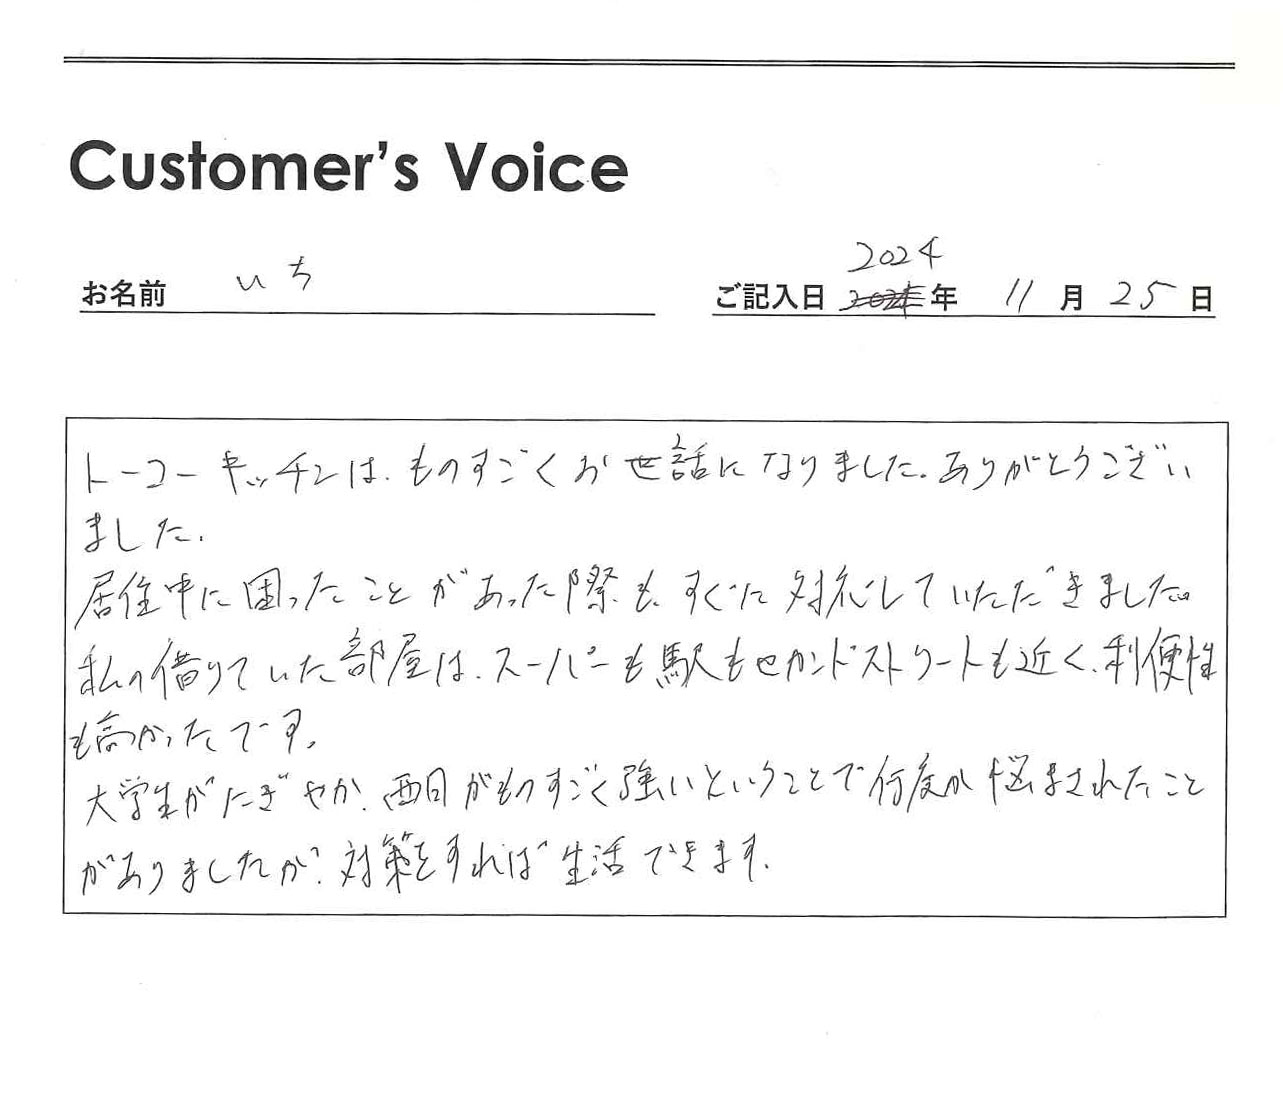 Customer's Voice
お名前 いち
2024
ご記入日 年 11 月 25 日
トーコーキッチンは、ものすごくお世話になりました。ありがとうござい
ました。
居住中に困ったことがあった際も、すぐに対応していただきました。
私の借りていた部屋は、スーパーも駅もセカンドストリートも近く、利便性
も高かったです。
大学生がにぎやか、西日がものすごく強いということで何度か悩まされたこと
がありましたが、対策をすれば生活できます。